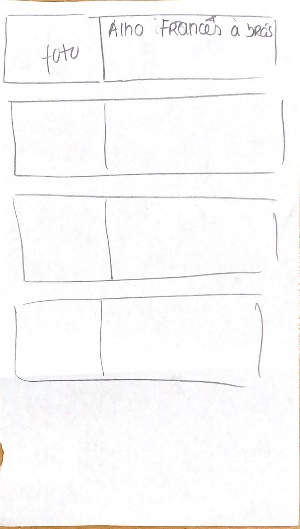 foto
Alho Francês à brás